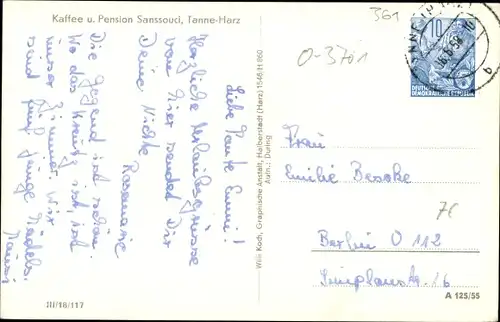 Kaffee u. Pension Sanssouci, Tanne-Harz
361
O-3701
10
DEUTSCHE
DEMOKRATISCHE REPUBLIK
Liebe Tante Emmi!
Herzliche Urlaubsgrüsse
von hier sendet Dir
Deine Nichte
Rosemarie
Die Gegend ist schön.
Wo das Kreuz ist, ist
unser Zimmer. Wir
sind fünf junge Mädels.
Willi Koch, Graphische Anstalt, Halberstadt (Harz) 1546 H 860
Aufn.: Düring
Frau
Emilie Beseke
Berlin O 112
Simplonstr. 16
III/18/117
A 125/55